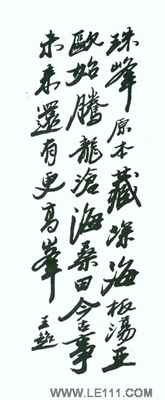 珠峯原本藏深海板蕩亞
歐始騰龍滄海桑田今古事
未来還有更高峯
王
www.LE111.COM